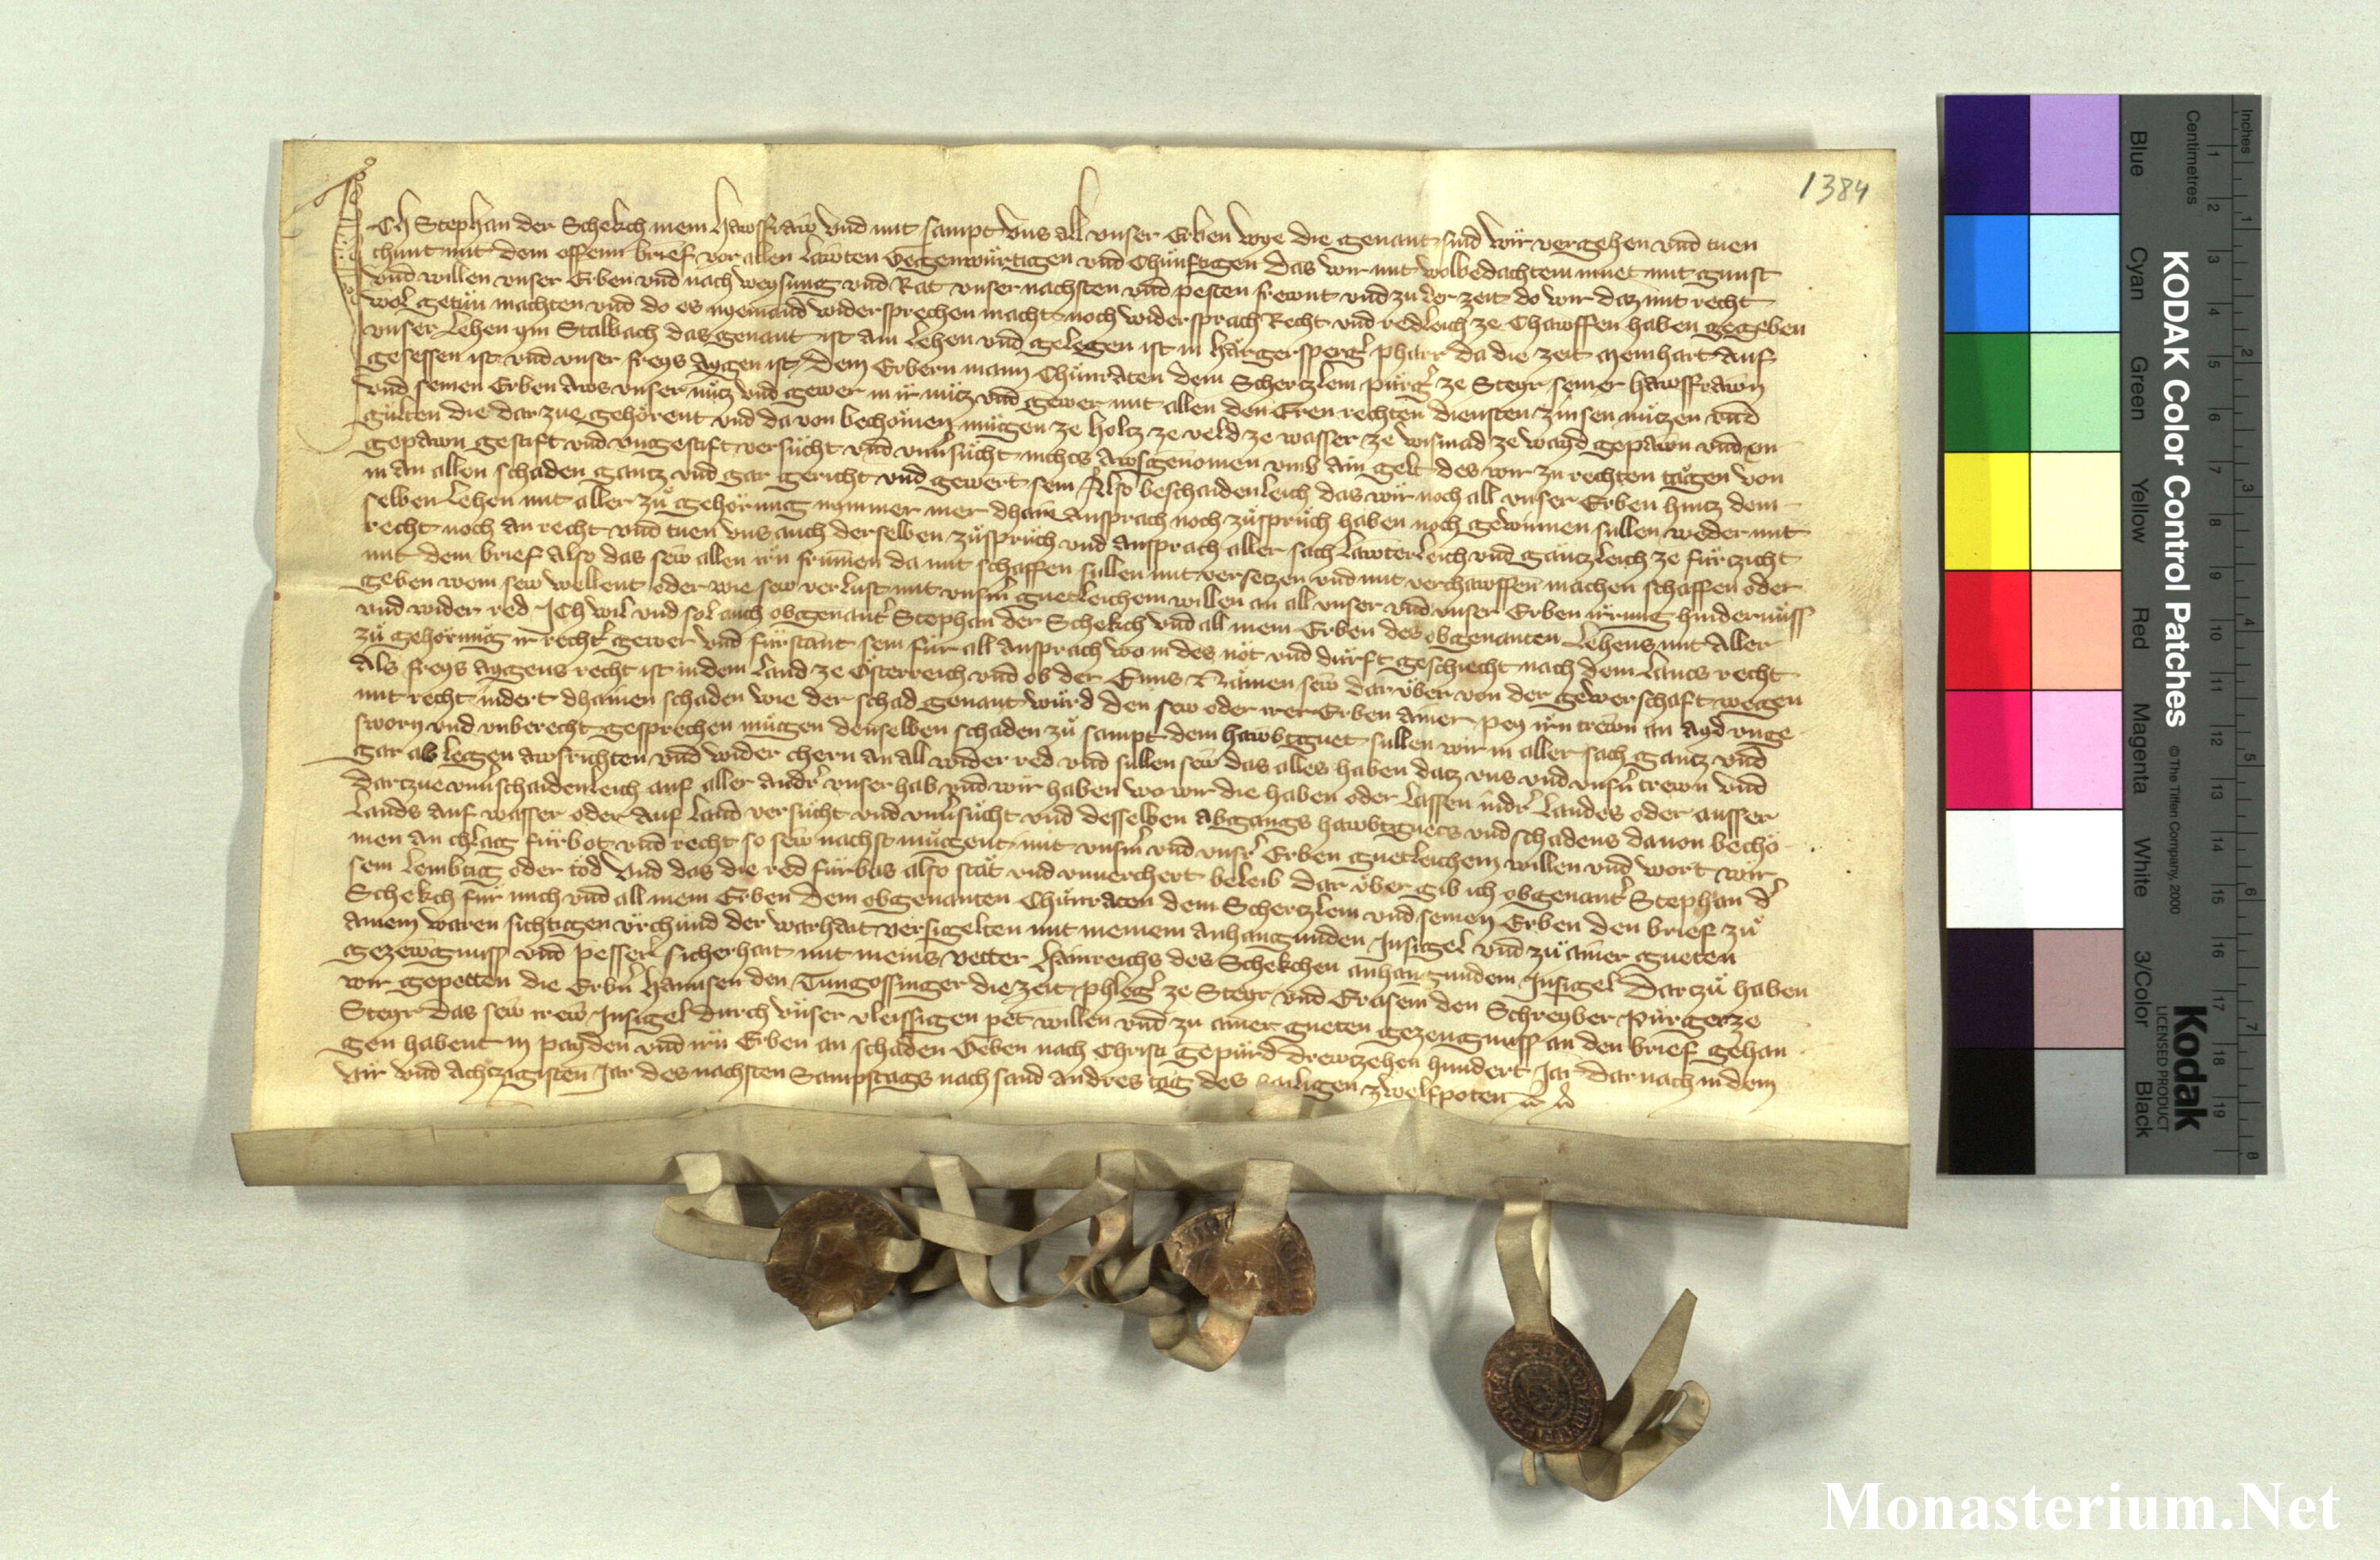 1384
Ich Stephan der Schekch mein hawsfraw vnd mit sampt vns all vnser Erben wye die genant sind wir vergehen vnd tuen
chunt mit dem offenn brief vor allen läwten Gegenwürtigen vnd Chünftigen das wir mit wolbedachtem muet mit gunst
vnd willen vnser Erben vnd nach weysung vnd Rat vnser nachsten vnd pesten frewnt vnd zu der zeit do wir daz mit recht
wol getün machten vnd do es nyemand widersprechen macht noch widersprach Recht vnd redleich ze Chawffen haben gegeben
vnser Lehen ym Stalbach das genant ist am Lehen vnd gelegen ist in Hargersperger pharr da die zeit Meinhart auf
gesessen ist vnd vnser freys aygen ist Dem Erbern mann Chünraten dem Schertzlein purger ze Steyr seiner hawsfrawn
vnd seinen Erben Aws vnser nütz vnd gewer in ir nütz vnd gewer mit allen den Eren rechten diensten zinsen nützen vnd
gülten die dar zue gehörent vnd da von bechömen mügen ze holtz ze veld ze wasser ze wismad ze wayd gepawn vnd vn
gepawn gestift vnd vngestift versücht vnd vnuersücht nichts awsgenomen vmb ain gelt des wir zu rechten tägen von
in an allen schaden gantz vnd gar gericht vnd gewert sein Also beschaidenleich das wir noch all vnser Erben hintz dem
selben Lehen mit aller zu gehörung nymmer mer dhain ansprach noch züsprüch haben noch gewinnen sullen weder mit
recht noch an recht vnd tuen vns auch derselben züsprüch vnd ansprach aller sach lawterleich vnd gäntzleich ze fürzicht
mit dem brief Also das sew allen irn frumen da mit schaffen sullen mit versetzen vnd mit verchawffen machen schaffen oder
geben wem sew wellent oder wie sew verlust mit vnserm guetleichem willen an all vnser vnd vnser Erben irrung hindernüss
vnd wider red Ich wil vnd sol auch obgenanter Stephan der Schekch vnd all mein Erben des obgenanten Lehens mit aller
zu gehörung ir rechter gewer vnd fürstant sein für all ansprach wo in des not vnd durft geschiecht nach dem lands recht
Als freys aygens recht ist in dem Land ze Österreich vnd ob der Enns Nämen sew dar über von der gewerschaft wegen
mit recht indert dhainen schaden wie der schad genant würd den sew oder irer Erben ainer pey irn trewn an ayd vnge
sworn vnd vnberecht gesprechen mügen denselben schaden zu sampt dem hawbtguet sullen wir in aller sach gantz vnd
gar ab legen awsrichten vnd wider chern an all wider red vnd sullen sew das alles haben datz vns vnd vnsern trewn vnd
dartzue vnuerschaidenleich auf aller andrer vnser hab vnd wir haben wo wir die haben oder lassen inder Landes oder ausser
Lands auf wasser oder auf land versücht vnd vnuersücht vnd desselben abgangs hawbtguets vnd schadens dauon bechö
men an chlag fürbot vnd recht so sew nachst mügent mit vnserm vnd vnser Erben guetleichem willen vnd wort wir
sein lembtig oder tod Vnd das die red fürbas also stät vnd vnuerchert beleib dar über gib ich obgenanter Stephan der
Schekch für mich vnd all mein Erben Dem obgenanten Chünraten dem Schertzlein vnd seinen Erben den brief zu
ainem waren sichtigen vrchünd der warhait versigelten mit meinem anhangunden Insigel vnd zu ainer gueten
gezewgnuss vnd pesser sicherhait mit meins vetter Hainreichs des Schekchen anhangundem Insigel Dar zu haben
wir gepetten die Erbern Hannsen den Tungossinger die zeit phleger ze Steyr vnd Erasem den Schreyber purger ze
Steyr das sew irew Insigel durch vnser vleissigen pet willen vnd zu ainer gueten gezeugnuss an den brief gehan
gen habent in payden vnd irn Erben an schaden Geben nach Christi gepürd Drewtzehen hundert Jar Dar nach in dem
vir vnd Achtzigisten Jar des nachsten Sampstags nach sand Andres tag des heiligen zwelfpoten
KODAK Color Control Patches
© The Tiffen Company, 2000
Kodak
LICENSED PRODUCT
Inches
Centimetres
1 2 3 4 5 6 7 8 9 10 11 12 13 14 15 16 17 18 19
1 2 3 4 5 6 7 8
Blue
Cyan
Green
Yellow
Red
Magenta
White
3/Color
Black
Monasterium.Net